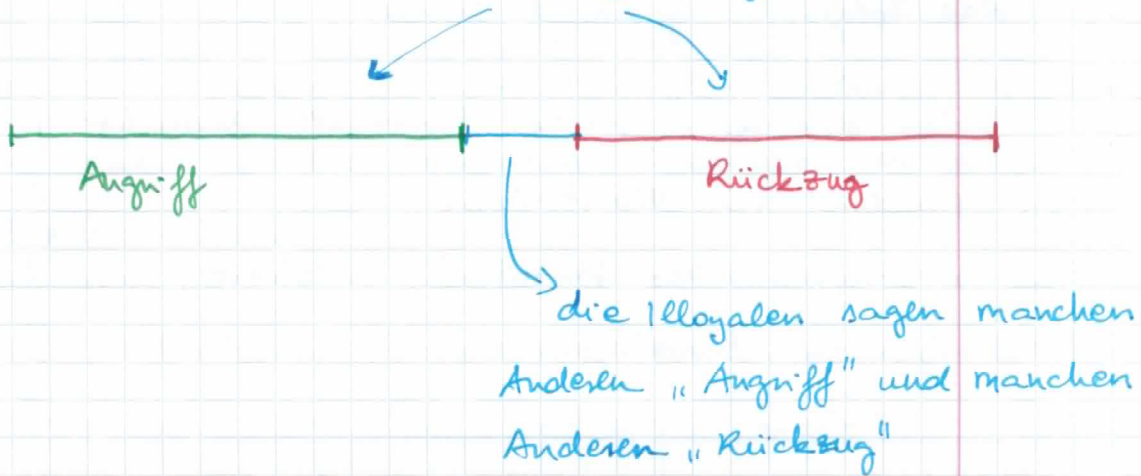 Angriff
Rückzug
die Illoyalen sagen manchen
Anderen „Angriff" und manchen
Anderen „Rückzug"